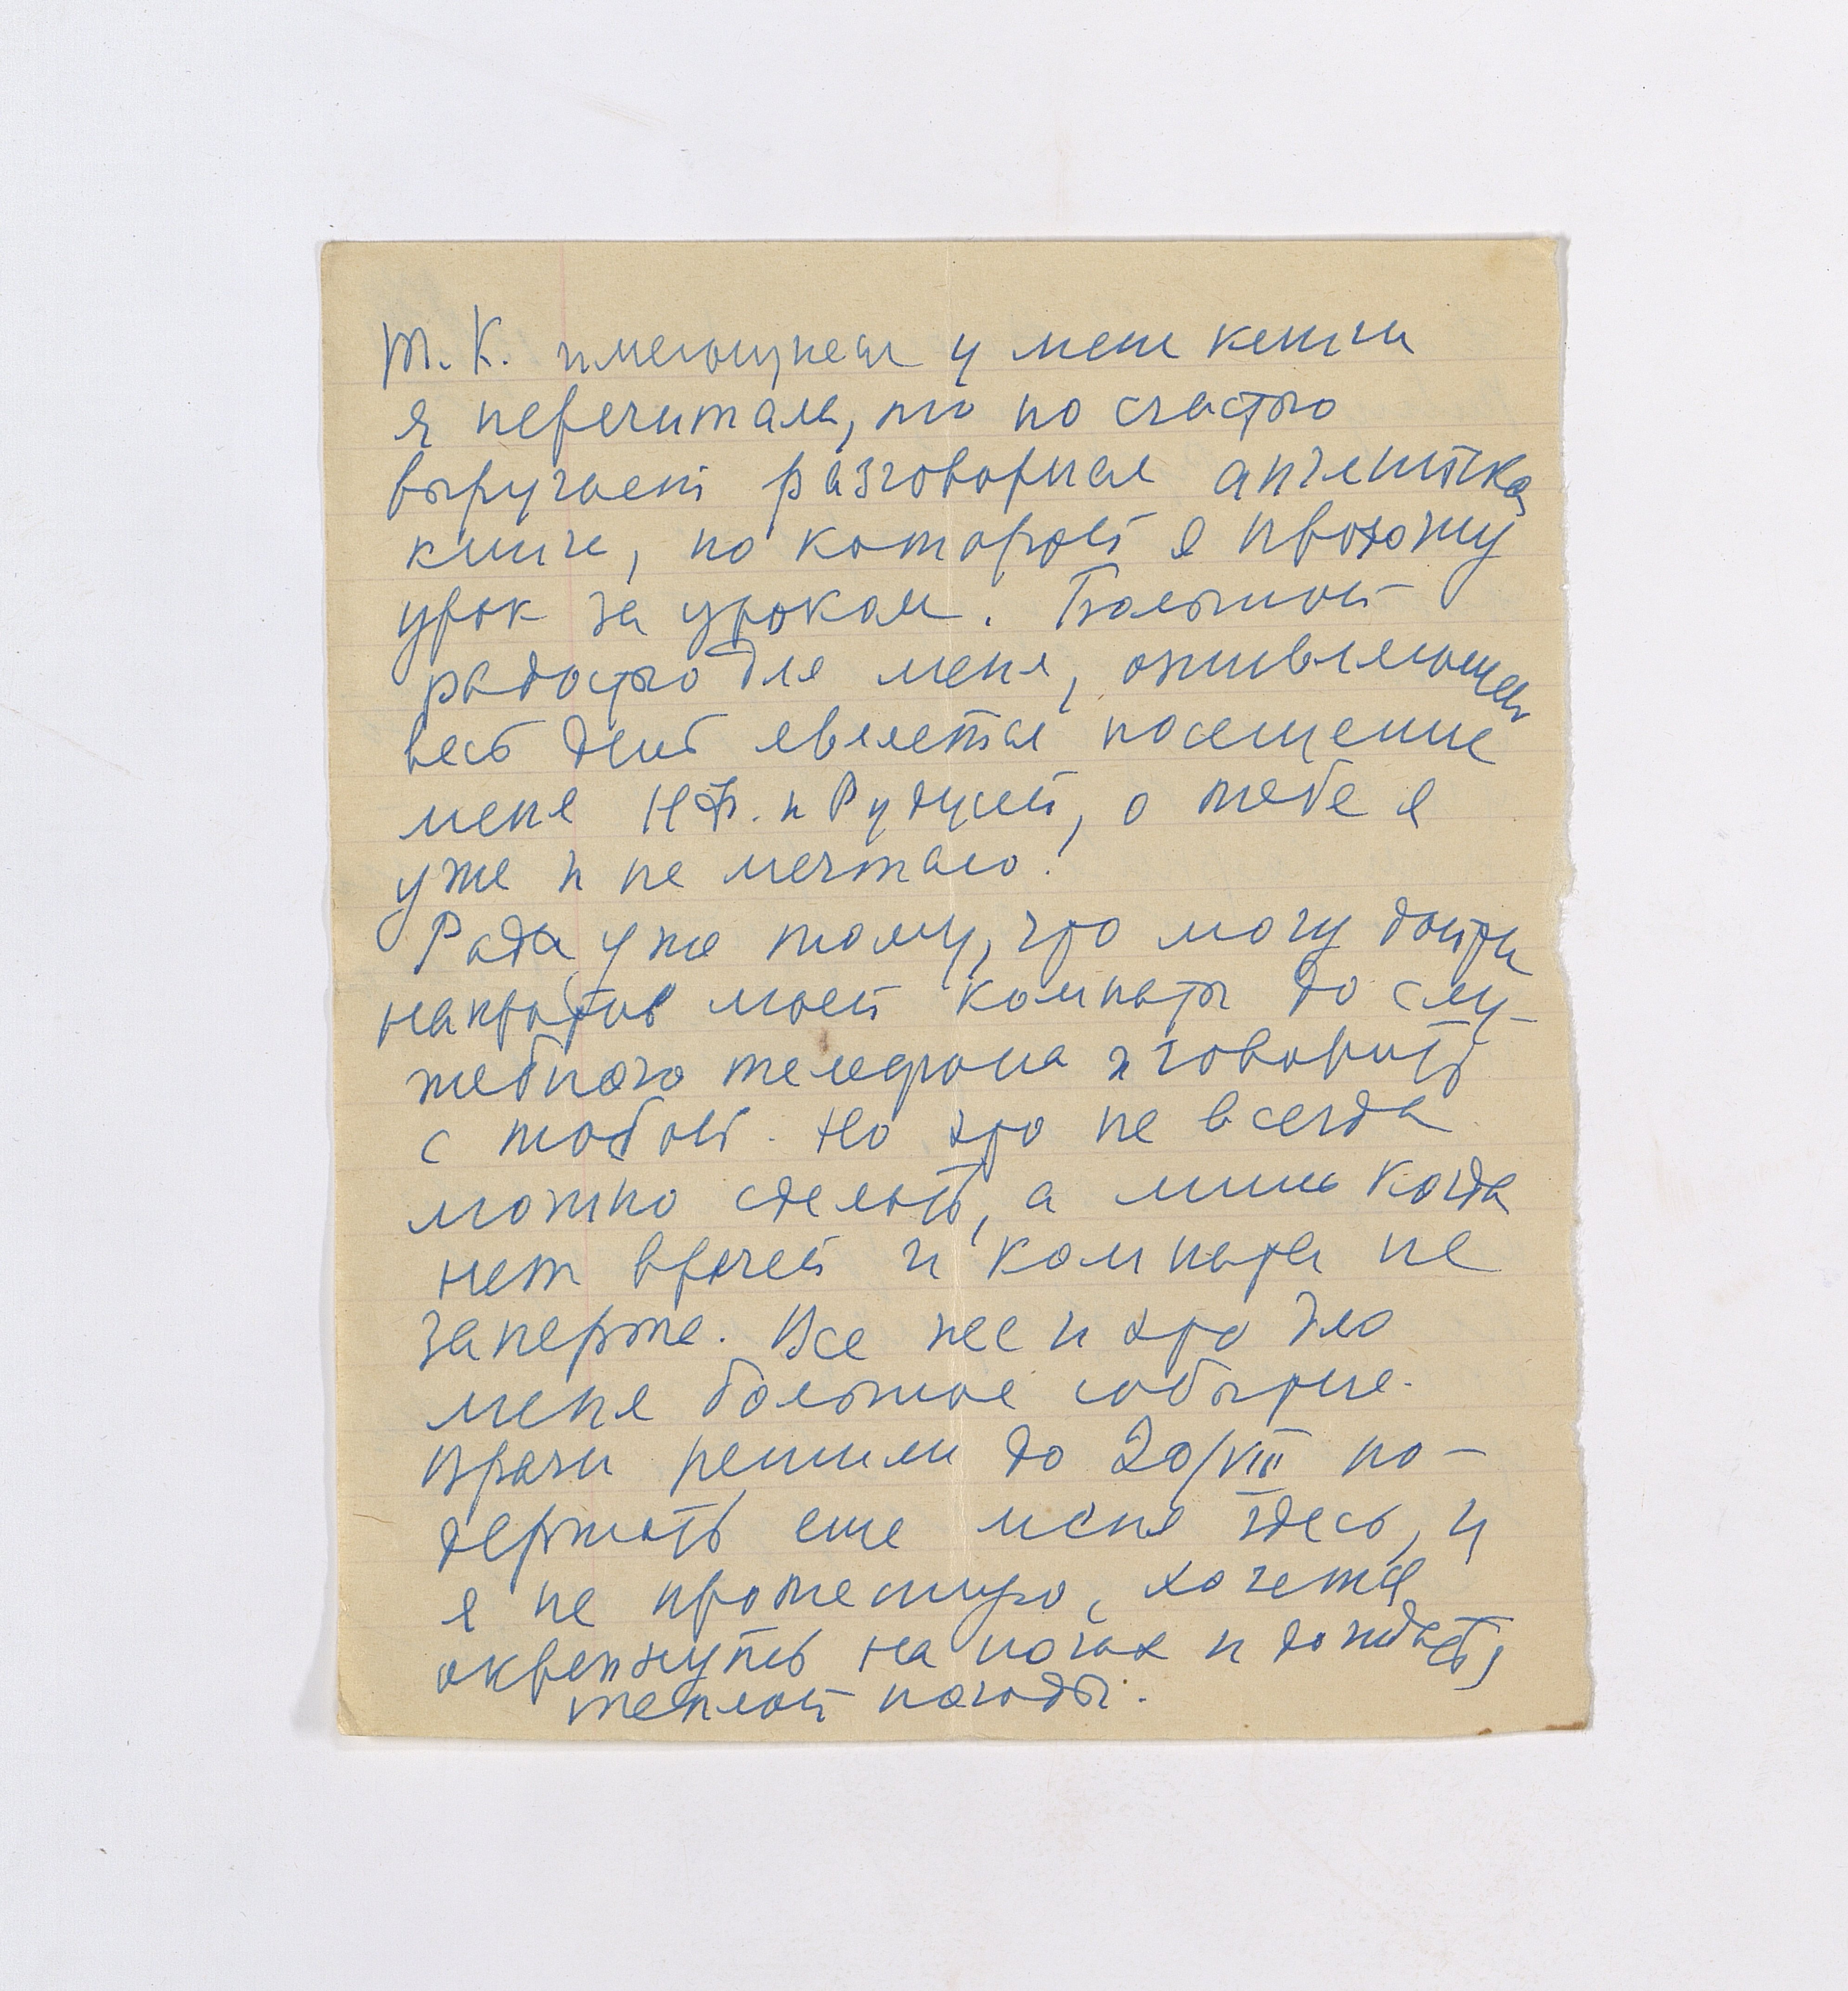 Т.К. имеющиеся у меня книги
я перечитала, то по счастью
выручает разговорная английская
книга, по которой я прохожу
урок за уроком. Большой
радостью для меня, оживляющей
весь день является посещение
меня Н.Ф. и Рудусей, о тебе я
уже и не мечтаю!
Рада уже тому, что могу дойти
напротив моей комнаты до слу-
жебного телефона и говорить
с тобой. Но это не всегда
можно сделать, а лишь когда
нет врачей и комната не
заперта. Все же и это для
меня большое событие.
Врачи решили до 20/VIII по-
держать еще меня здесь, и
я не протестую, хочется
окрепнуть на ногах и дождаться
теплой погоды.